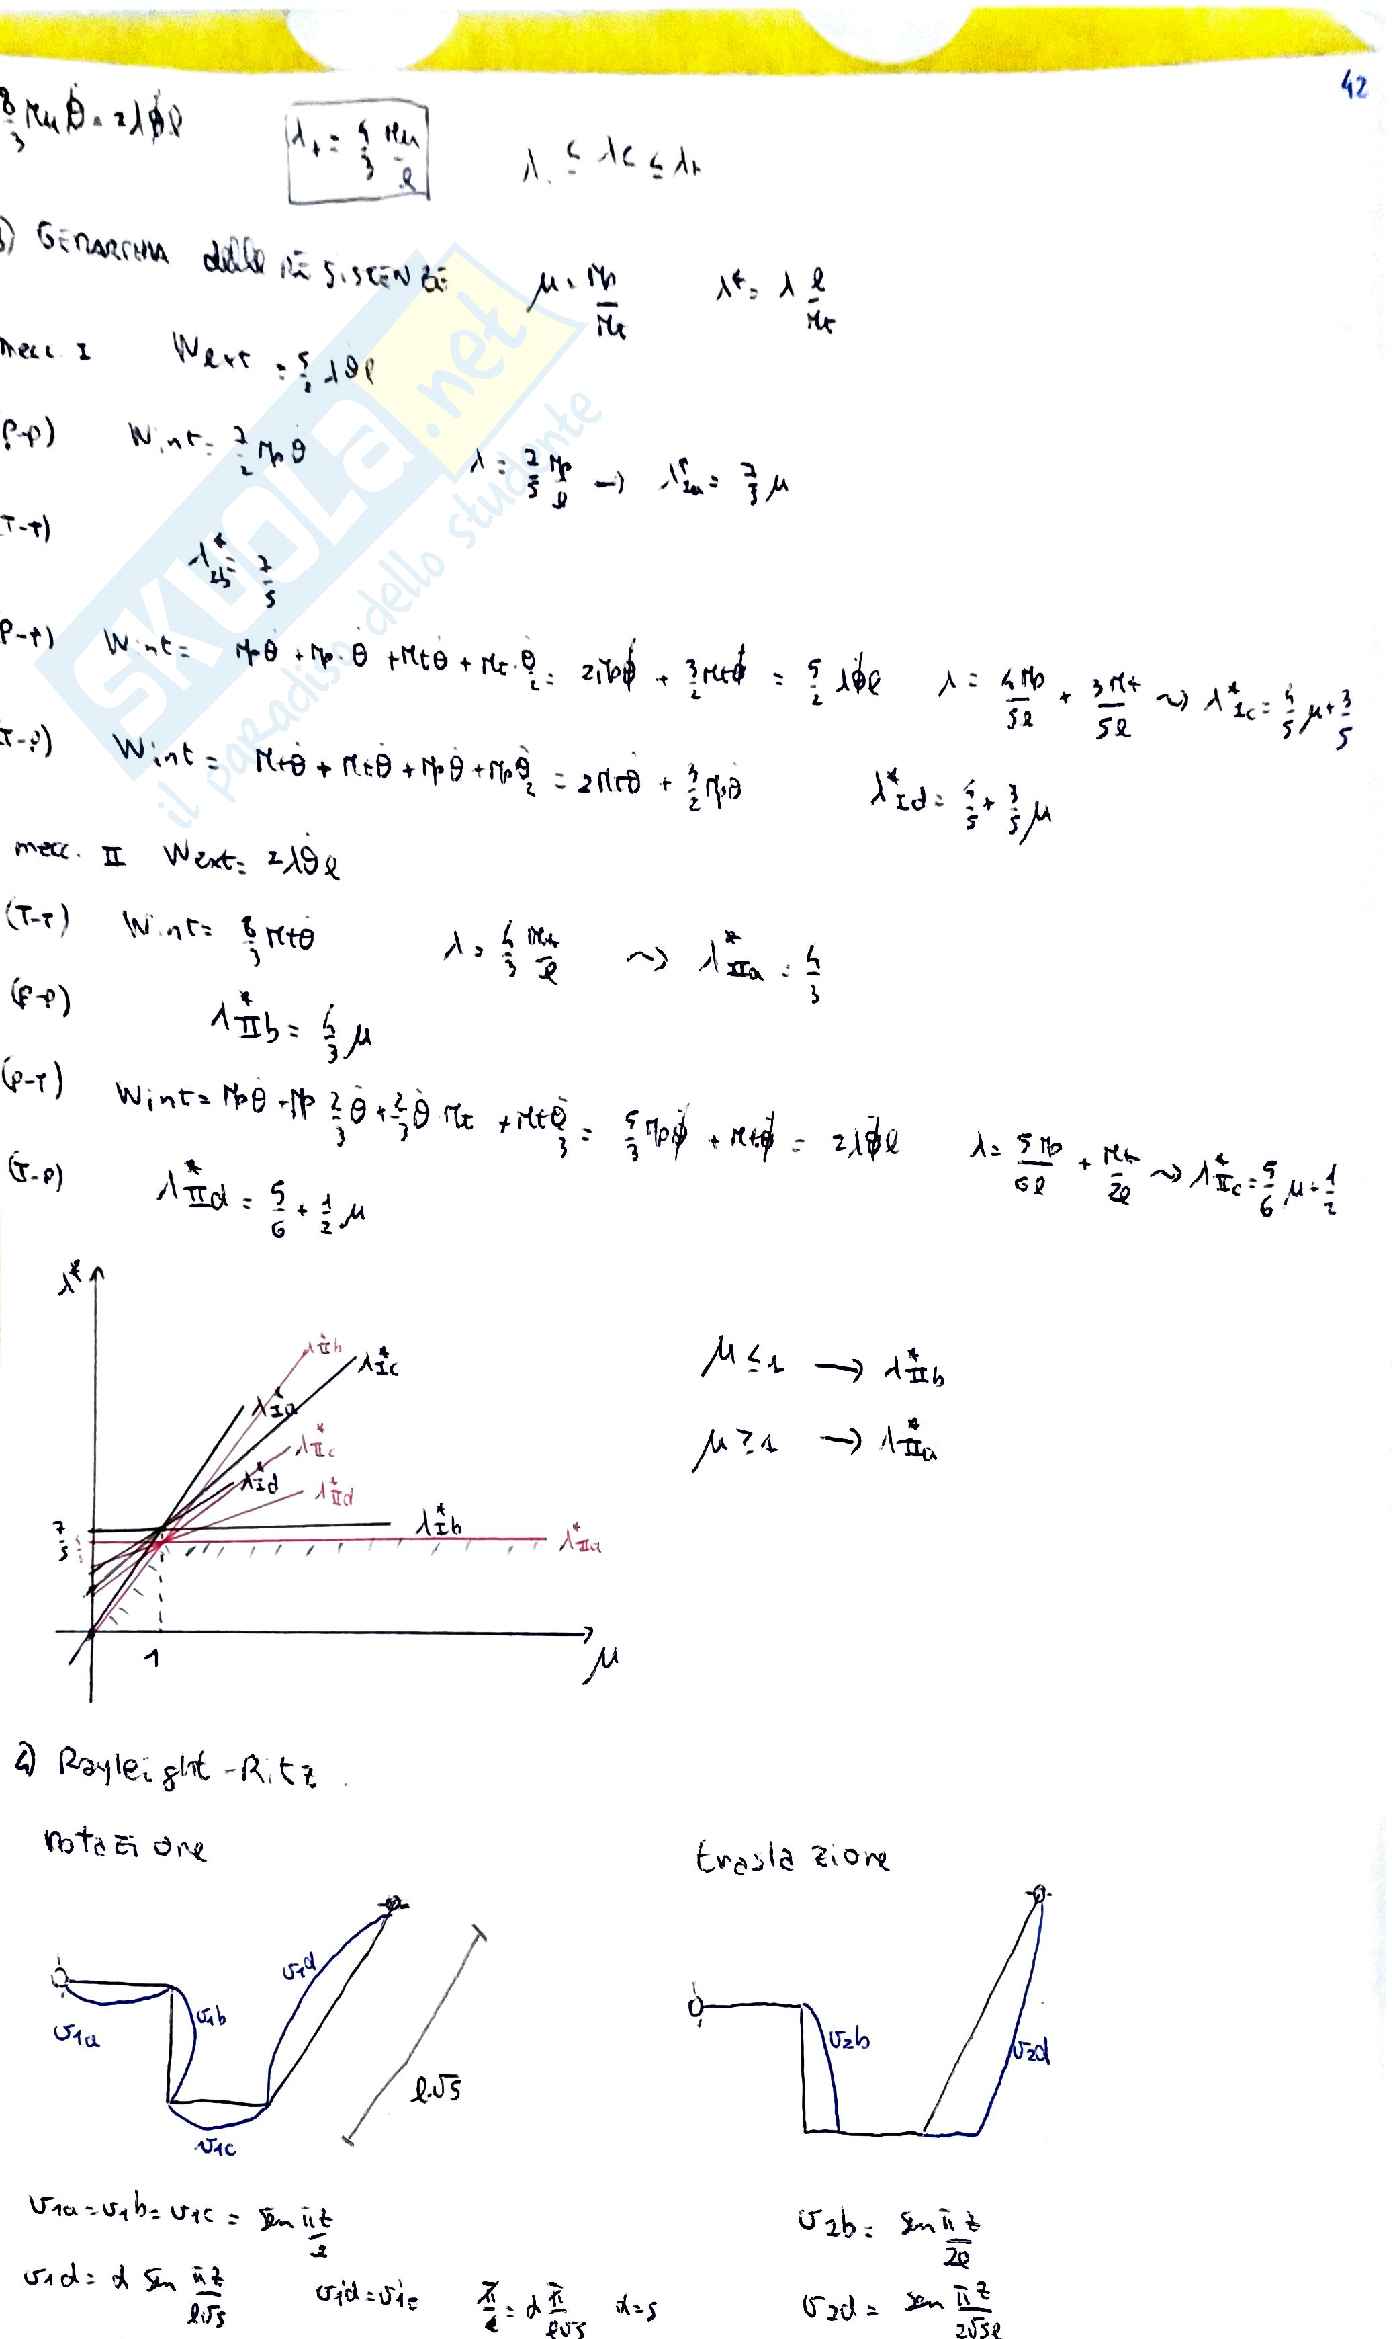 42
8/3 Mu θ̇ = 2λθ̇l   λ+ = 4/3 Mu/l   λ- ≤ λc ≤ λ+
3) GERARCHIA delle RESISTENZE   μ = Mp/Mt   λ* = λ l/Mt
mecc. I   Wext = 5/2 λθ̇l
(P-P)   Wint = 7/2 Mp θ̇   λ = 7/5 Mp/l → λ*Ia = 7/5 μ
(T-T)   λ*Ib = 7/5
(P-T)   Wint = Mpθ̇ + Mp·θ̇ + Mtθ̇ + Mt·θ̇/2 = 2Mpθ̇ + 3/2 Mtθ̇ = 5/2 λθ̇l   λ = 4Mp/5l + 3Mt/5l ~> λ*Ic = 4/5 μ + 3/5
(T-P)   Wint = Mtθ̇ + Mtθ̇ + Mpθ̇ + Mpθ̇/2 = 2Mtθ̇ + 3/2 Mpθ̇   λ*Id = 4/5 + 3/5 μ
mecc. II   Wext = 2λθ̇l
(T-T)   Wint = 8/3 Mtθ̇   λ = 4/3 Mt/l ~> λ*IIa = 4/3
(P-P)   λ*IIb = 4/3 μ
(P-T)   Wint = Mpθ̇ + Mp 2/3 θ̇ + 2/3 θ̇ Mt + Mtθ̇/3 = 5/3 Mpθ̇ + Mtθ̇ = 2λθ̇l   λ = 5Mp/6l + Mt/2l ~> λ*IIc = 5/6 μ + 1/2
(T-P)   λ*IId = 5/6 + 1/2 μ
λ*
λ*IIb
λ*Ic
λ*Ia
λ*IIc
λ*Id
λ*IId
λ*Ib
λ*IIa
7/5
1
μ
μ ≤ 1 → λ*IIb
μ ≥ 1 → λ*IIa
4) Rayleight-Ritz
rotazione
traslazione
v1a
v1b
v1c
v1d
l√5
v2b
v2d
v1a = v1b = v1c = sen πz/l
v2b = sen πz/2l
v1d = α sen πz/l√5   v1'd = v1'c   π/l = α π/l√5   α=5
v2d = sen πz/2√5l
SKUOLA.net
il paradiso dello studente